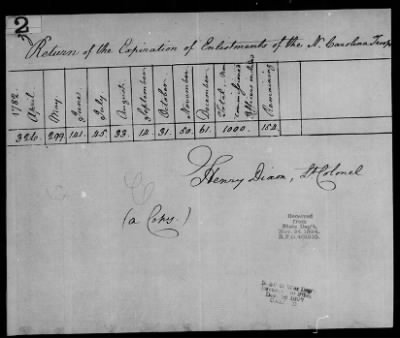 2
Return of the Expiration of Enlistments of the N. Carolina Troops
1782. April. May. June. July. August. September. October. November. December. Total, non commissioned Officers &c. Remaining
326. 299. 141. 45. 33. 14. 31. 50. 61. 1000. 154.
Henry Dixon, Lt Colonel
(a Copy.)
Received
from
State Dep't.